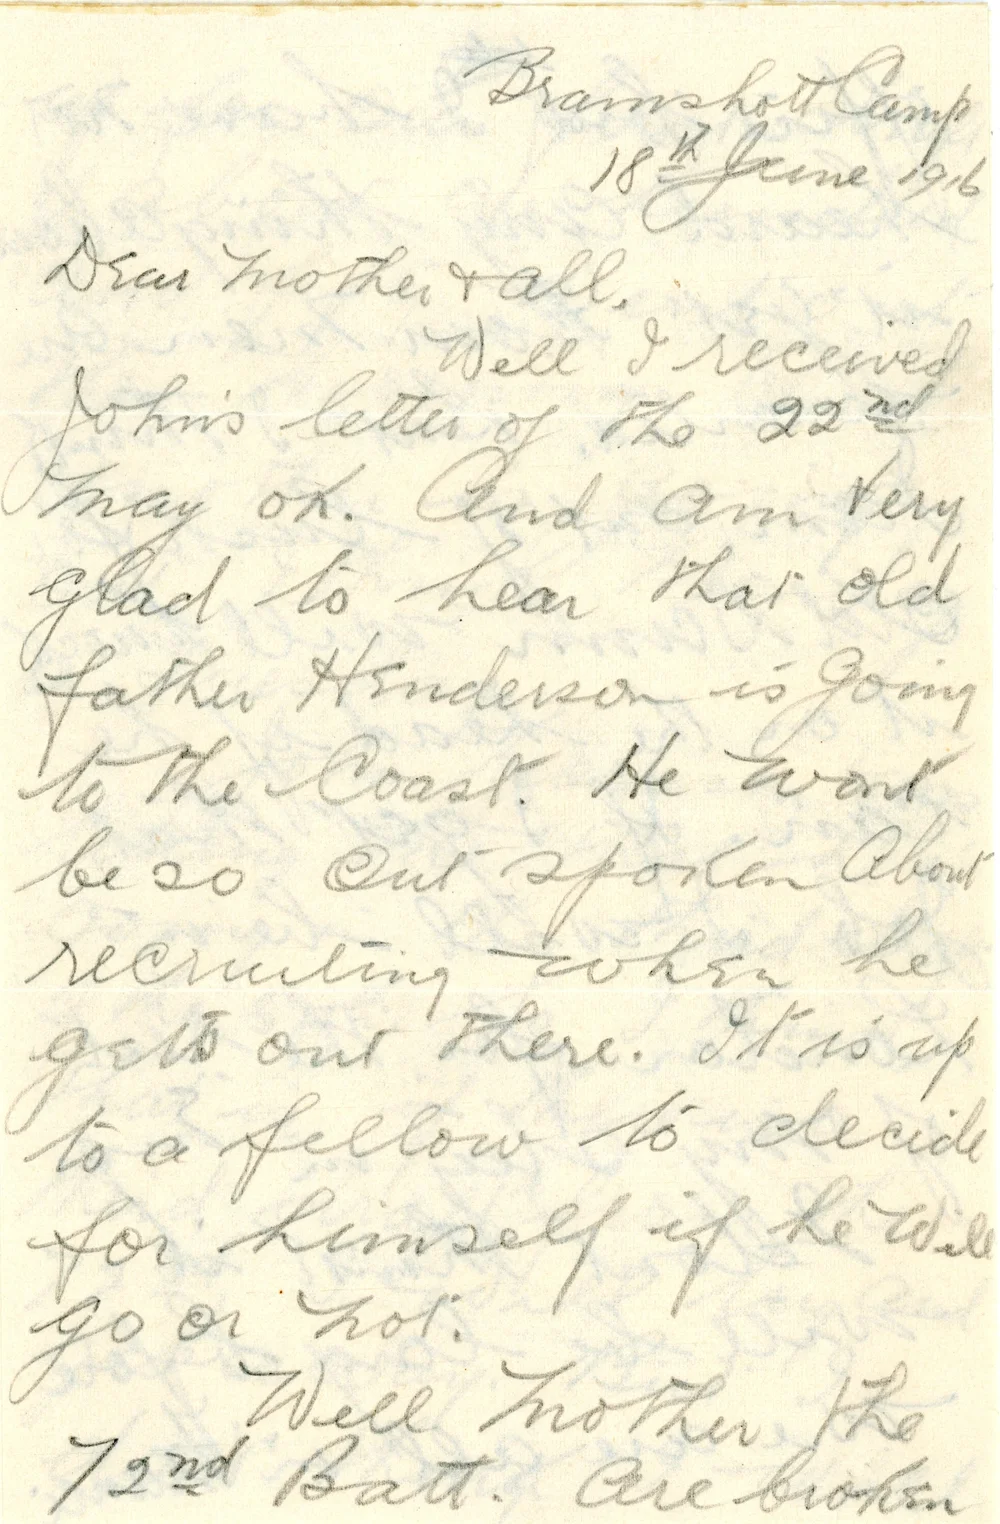 Bramshott Camp
18th June 1916
Dear Mother & all.
Well I received
John's letter of the 22nd
May ok. And am very
glad to hear that old
father Henderson is going
to the Coast. He wont
be so out spoken About
recruiting when he
gets out there. It is up
to a fellow to decide
for himself if he will
go or not.
Well Mother the
72nd Batt. are broken